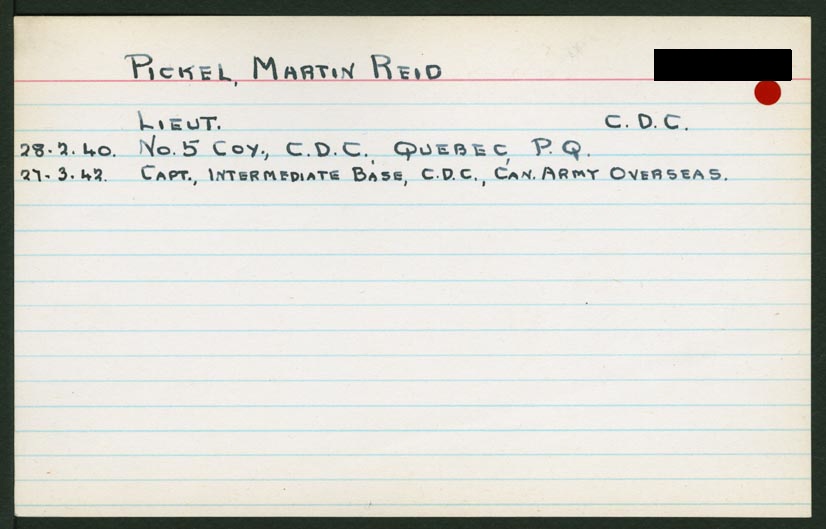 PICKEL, MARTIN REID
LIEUT. C.D.C.
28.2.40. No.5 COY., C.D.C., QUEBEC, P.Q.
27.3.42. CAPT., INTERMEDIATE BASE, C.D.C., CAN. ARMY OVERSEAS.